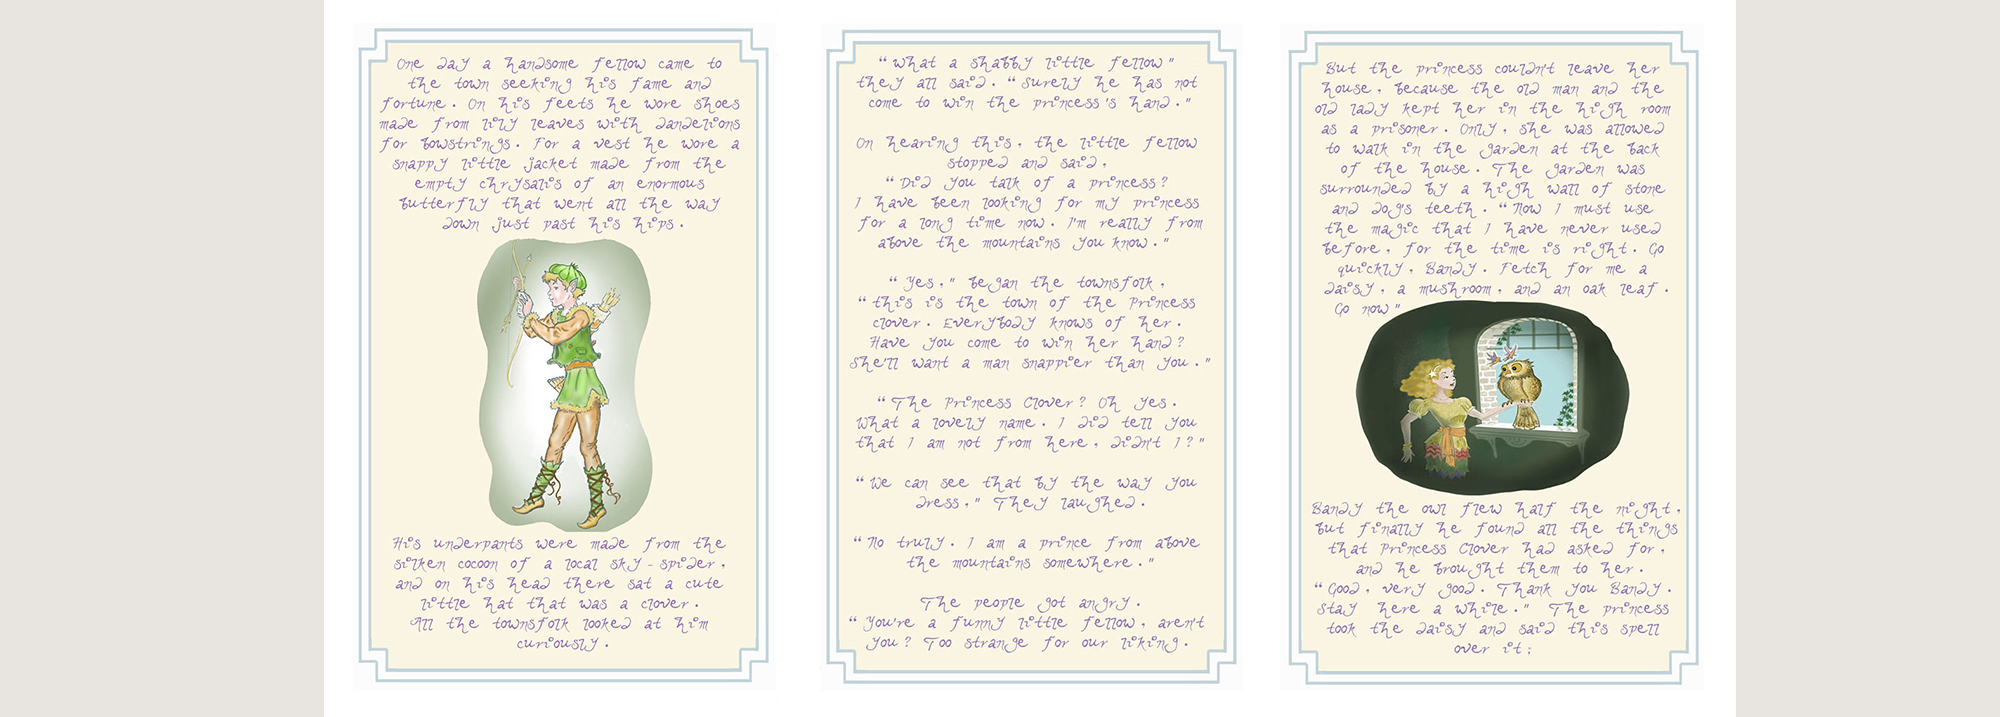 One day a handsome fellow came to
the town seeking his fame and
fortune. On his feets he wore shoes
made from lily leaves with dandelions
for bowstrings. For a vest he wore a
snappy little jacket made from the
empty chrysalis of an enormous
butterfly that went all the way
down just past his hips.
His underpants were made from the
silken cocoon of a local sky-spider,
and on his head there sat a cute
little hat that was a clover.
All the townsfolk looked at him
curiously.
"What a shabby little fellow"
they all said. "Surely he has not
come to win the princess's hand."
On hearing this, the little fellow
stopped and said,
"Did you talk of a princess?
I have been looking for my princess
for a long time now. I'm really from
above the mountains you know."
"Yes," began the townsfolk,
"this is the town of the Princess
Clover. Everybody knows of her.
Have you come to win her hand?
She'll want a man snappier than you."
"The Princess Clover? Oh yes.
What a lovely name. I did tell you
that I am not from here, didn't I?"
"We can see that by the way you
dress." They laughed.
"No truly. I am a prince from above
the mountains somewhere."
The people got angry.
"You're a funny little fellow, aren't
you? Too strange for our liking.
But the princess couldn't leave her
house, because the old man and the
old lady kept her in the high room
as a prisoner. Only, she was allowed
to walk in the garden at the back
of the house. The garden was
surrounded by a high wall of stone
and dog's teeth. "Now I must use
the magic that I have never used
before, for the time is right. Go
quickly, Bandy. Fetch for me a
daisy, a mushroom, and an oak leaf.
Go now"
Bandy the owl flew half the night,
but finally he found all the things
that Princess Clover had asked for,
and he brought them to her.
"Good, very good. Thank you Bandy.
Stay here a while." The princess
took the daisy and said this spell
over it: